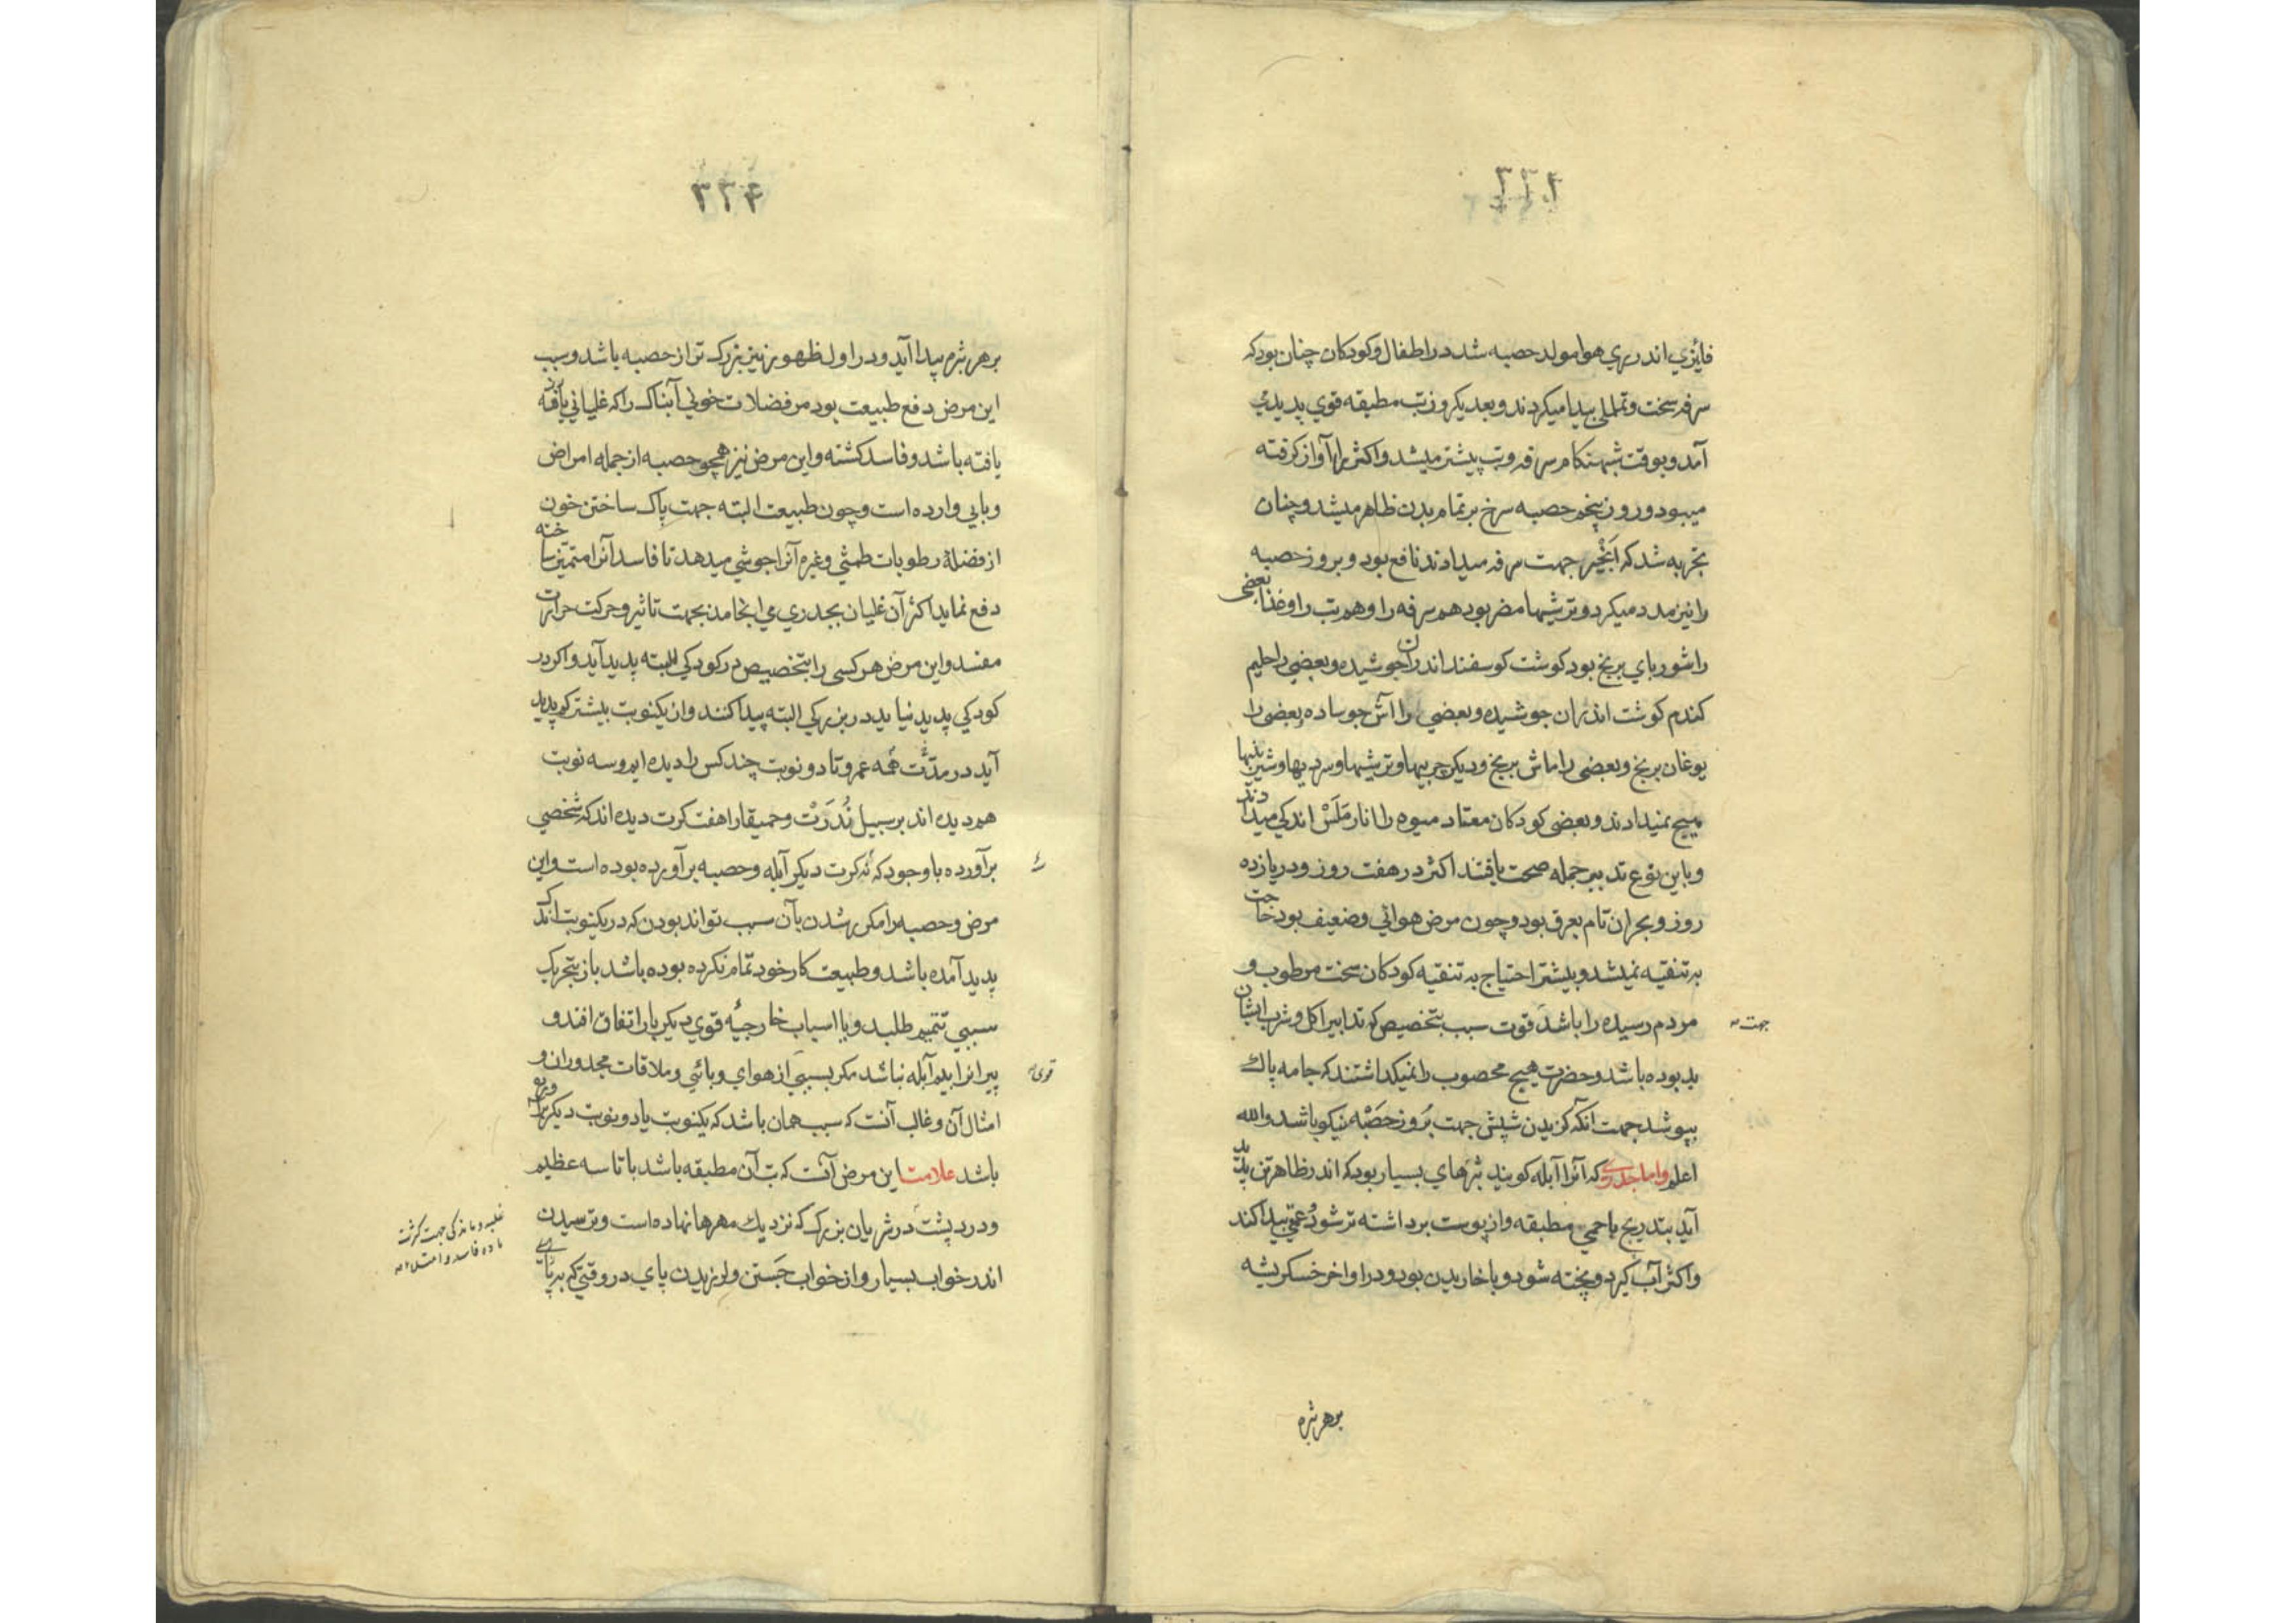 فایزی اندر ری هوا مولد حصبه شد در اطفال و کودکان چنان بود که
سرفه سخت و تململ پیدا میکردند و بعد یکروز تب مطبقه قوی پدید
آمد و بوقت شبهنکام سرفه و تب پیشتر میشد و اکثر را آواز کرفته
میبود و روز پنجم حصبه سرخ بر تمام بدن ظاهر میشد و چنان
تجربه شد که انجیر جهت سرفه میدادند نافع بود و بروز حصبه
را نیز مدد میکرد و ترشیها مضر بود هم سرفه را و هم تب را و غذا بعضی
را شوربای برنج بود کوشت کوسفند اندران جوشیده و بعضی را حلیم
کندم کوشت اندران جوشیده و بعضی را آش جو ساده و بعضی را
یوغان برنج و بعضی را ماش برنج و دیکر چربیها و ترشیها و سردیها و شیرینیها
هیچ نمیدادند و بعضی کودکان معتاد میوه را انار ملس اندکی میدادند
و باین نوع تدبیر جمله صحت یافتند اکثر در هفت روز و در یازده
روز و بحران تام بعرق بود و چون مرض هوائی و ضعیف بود حاجت
به تنقیه نمیشد و بیشتر احتیاج به تنقیه کودکان سخت مرطوب و
مردم رسیده را باشد قوت سبب بتخصیص که تدابیر اکل و شرب ایشان
جهت
بد بوده باشد و حضرت هیچ محصوب را نمیکداشتند که جامه پاک
بپوشد جهت آنکه کزیدن شپش جهت بروز حصبه نیکو باشد والله
اعلم واما جدری که آنرا آبله کویند بثرهای بسیار بود که اندر ظاهر تن پدید
آید بتدریج با حمی مطبقه و از پوست برداشته تر شود و عمقی پیدا کند
و اکثر آب کیرد و پخته شود و با خاریدن بود و در اواخر خسکریشه
بر هر بثره
۳۲۴
بر هر بثره پیدا آید و در اول ظهور نیز بزرک تر از حصبه باشد و سبب
این مرض دفع طبیعت بود مر فضلات خونی آبناک را که غلیانی یافته
یافته باشد و فاسد کشته و این مرض نیز همچو حصبه از جمله امراض
وبایی وارده است و چون طبیعت البته جهت پاک ساختن خون
از فضلهٔ رطوبات طمثی و غیره آنرا جوشی میدهد تا فاسد آنرا متمیز ساخته
دفع نماید اکثر آن غلیان بجدری می انجامد بجهت تاثیر و حرکت حرارت
مفسد و این مرض هر کسی را بتخصیص در کودکی البته پدید آید و اکر در
کودکی پدید نیاید در بزرکی البته پیدا کنند و آن یکنوبت بیشتر کم پدید
آید در مدت همه عمر و تا دو نوبت چند کس را دیده ایم و سه نوبت
هم دیده اند بر سبیل ندرت و حمیقا را هفت کرت دیده اند که شخصی
برآورده با وجود که نه کرت دیکر آبله و حصبه برآورده بوده است و این
مرض و حصبه را مکرر شدن بآن سبب تواند بودن که در یکنوبت اندک
پدید آمده باشد و طبیعت کار خود تمام نکرده بوده باشد باز بتحریک
سببی تتمیم طلبد و یا اسباب خارجیه قوی دیکر بار اتفاق افتد و
پیرانرا بیم آبله نباشد مکر بسببی از هوای وبائی و ملاقات مجدوران و
قوی
امثال آن و غالب آنست که سبب همان باشد که یکنوبت یا دو نوبت دیکر
باشد علامت این مرض آنست که تب آن مطبقه باشد با تاسه عظیم
و درد پشت در شریان بزرک که نزدیک مهرها نهاده است و ترسیدن
اندر خواب بسیار و از خواب جستن و لرزیدن پای در وقتی که بر پای